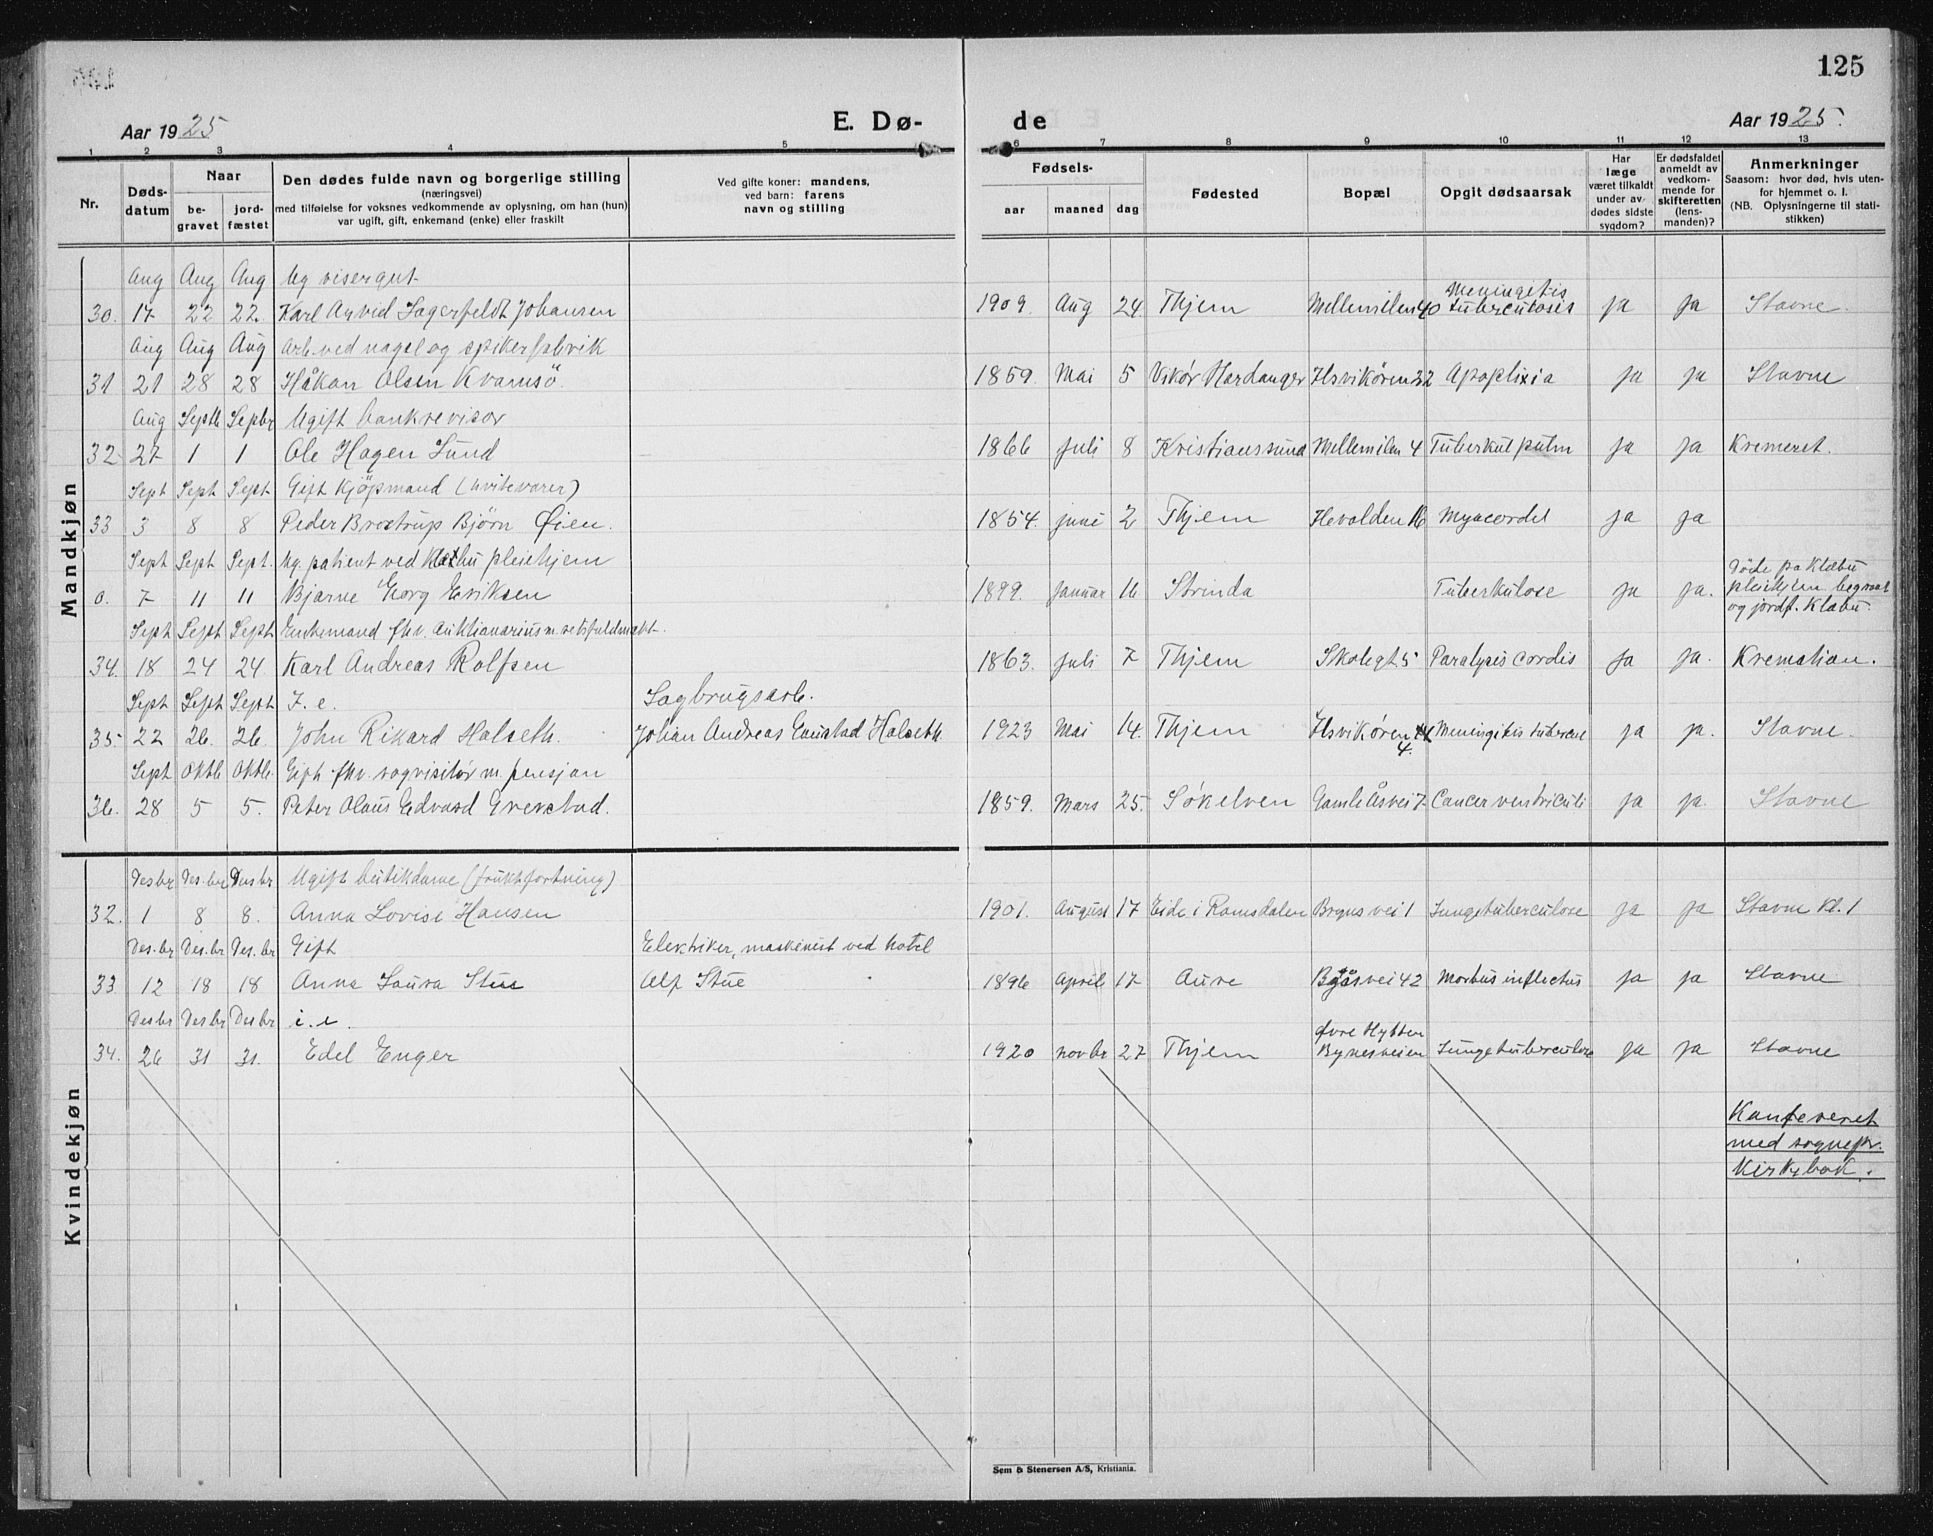 125
Aar 1925 E. Dø- de Aar 1925.
1 2 3 4 5 6 7 8 9 10 11 12 13
Nr. Døds-datum Naar be-gravet jord-fæstet Den dødes fulde navn og borgerlige stilling (næringsvei) med tilføielse for voksnes vedkommende av oplysning, om han (hun) var ugift, gift, enkemand (enke) eller fraskilt Ved gifte koner: mandens, ved barn: farens navn og stilling Fødsels- aar maaned dag Fødested Bopæl Opgit dødsaarsak Har læge været tilkaldt under av-dødes sidste sygdom? Er dødsfaldet anmeldt av vedkom-mende for skifteretten (lens-manden)? Anmerkninger Saasom: hvor død, hvis uten-for hjemmet o. l. (NB. Oplysningerne til stati-stikken)
Mandkjøn
Aug Aug Aug Ug visergut
30. 17 22 22. Karl Arvid Lagerfeldt Johansen 1909. Aug 24 Thjem Mellemilen 40 Meningetis tuberculosis ja ja Stavne.
Aug Aug Aug Arb. ved nagel og spikerfabrik
31 21 28 28 Håkon Olsen Kvamsö. 1859. Mai 5 Vikør Hardanger Ilsvikören 22 Apoplixia ja ja Stavne
Aug Septb Sepbr Ugift bankrevisor
32 27 1 1 Ole Hagen Lund 1866 Juli 8 Kristianssund Mellemilen 4 Tuberkul pulm ja ja Kremeret.
Sept Sept Sept Gift kjöpmand (hvitevarer)
33 3 8 8 Peder Broxtrup Bjørn Øien. 1854. juni 2 Thjem Hevolden 16 Myocordit ja ja
Sept Sept Sept. Ug. patient ved Klæbu pleiehjem
0. 7 11 11 Bjarne Georg Eriksen 1899. januar 16 Strinda Tuberkulose ja ja. Döde på Klæbu pleiehjem begravet og jordf. Klæbu.
Sept Sept Sept Enkemand fhv. Auktionarius m. retsfuldmækt.
34. 18 24 24 Karl Andreas Rolfsen 1863. juli 7 Thjem Skolegt 5 Paralysis cordis ja ja. Kremation.
Sept Sept Sept I. e. Sagbrugsarb.
35. 22 26. 26. John Rikard Halseth. Johan Andreas Gaustad Halseth. 1923 Mai 14. Thjem Ilsvikören 4. Meningitis tubercul ja ja. Stavne.
Sept Oktb Oktb. Gift fhv. vogvisitör m. pensjon
36. 28 5 5. Peter Olaus Edvard Grevstad. 1859. Mars 25. Søkelven Gamle Åsvei 7 Cancer ventriculi ja ja. Stavne
Kvindekjøn
Desbr Des.br Desbr Ugift butikdame (fruktfortning)
32. 1 8 8. Anna Lovise Hansen 1901. August 17 Eide i Romsdalen Bygnsvei 1 Lungetuberculose ja ja Stavne Kl. 1
Des.br Des.br Des.br Gift Elektriker, maskinist ved hotel
33 12 18 18 Anna Laura Stue Alf Stue 1896 April 17 Aure Byåsvei 42 Morbus inflectus ja ja Stavne
Desbr Des br Desbr i. e.
34. 26 31 31. Edel Enger 1920 novbr 27 Thjem Øvre Hytten Bynesveien Lungetuberculose ja ja Stavne
Konfereret
med sognepr.
Kirkebok.
Sem & Stenersen A/S, Kristiania.